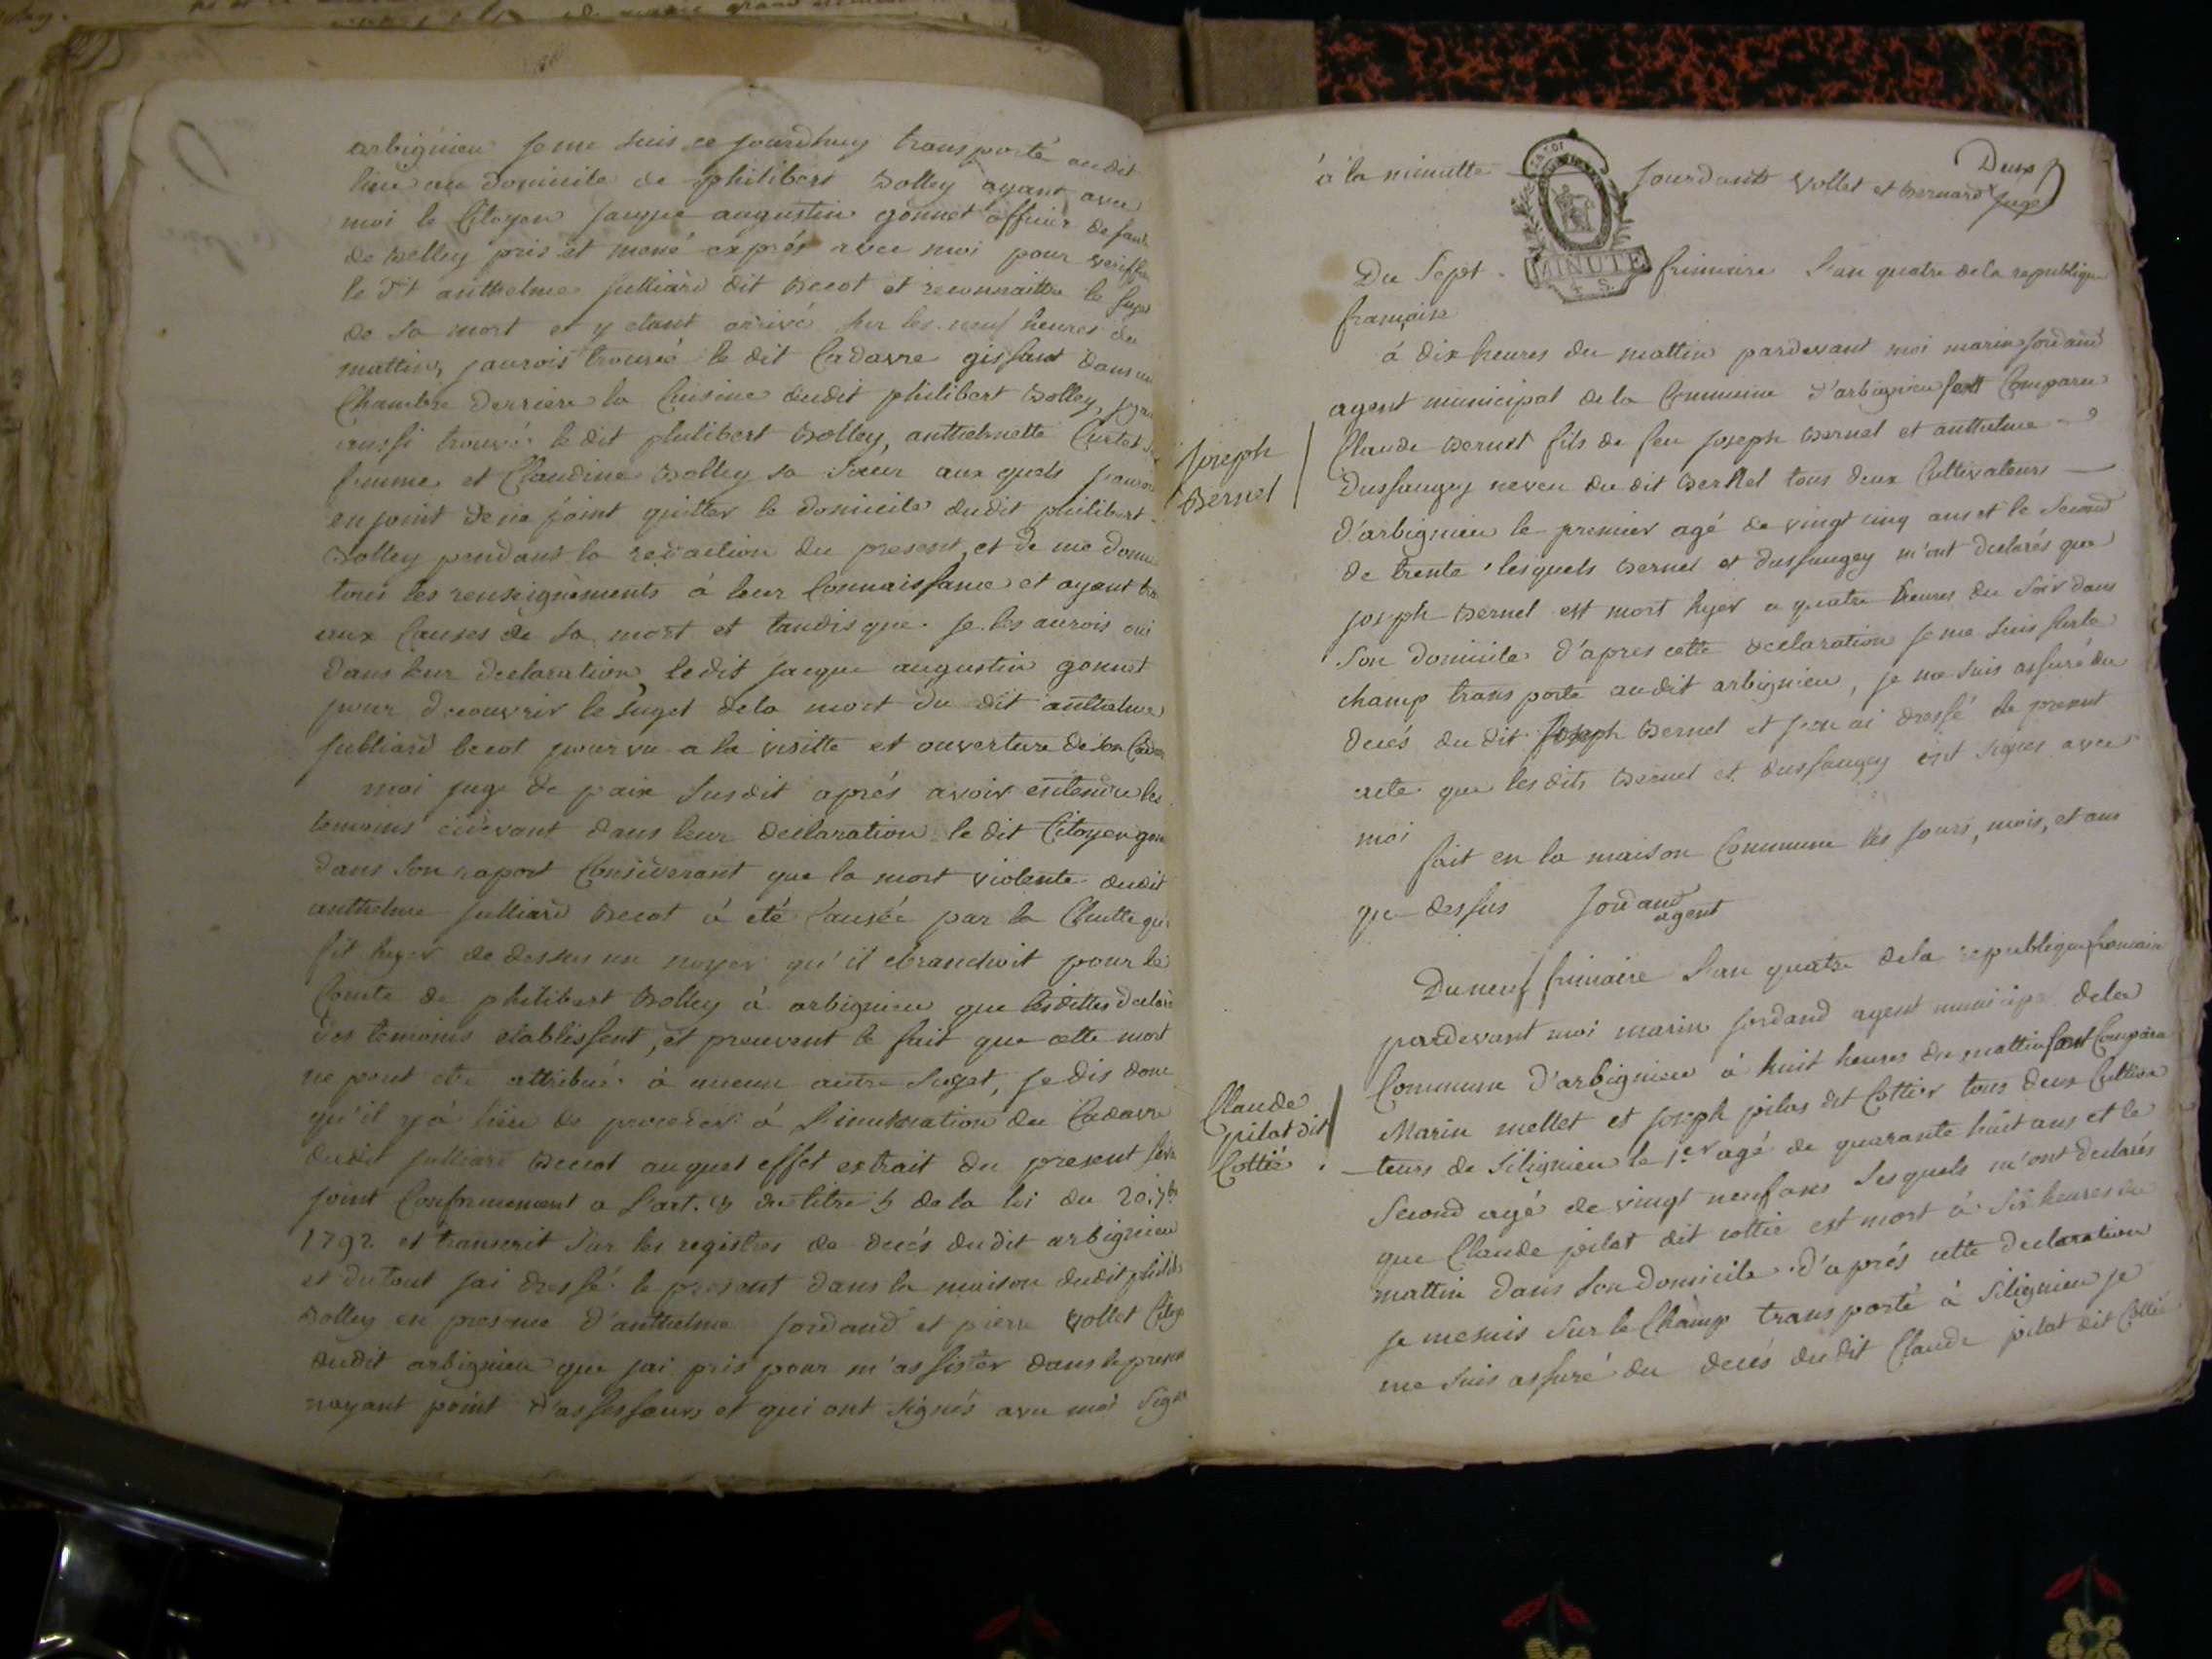 arbignieu je me suis ce jourdhuy transporté audit
lieu au domicile de philibert Bolley ayant avec
moi le Citoyen jacque augustin gonnet officier de santé
de Belley pris et mené exprés avec moi pour veriffier
le dit anthelme julliard dit Becot et reconnaitre le suget
de sa mort et y etant arrivé sur les neuf heures du
mattin, jaurois trouvé le dit Cadavre gissant dans une
Chambre derriere la Cuisine dudit philibert Bolley, jy au
aussi trouvé le dit philibert Bolley, anthelmette Curtet sa
femme et Claudine Bolley sa Sœur aux quels jaurois
enjoint de ne point quitter le domicile dudit philibert
Bolley pendant la redaction du present, et de me donner
tous les renseignements à leur Connaissance et ayant tra
aux Causes de sa mort et tandis que je les aurois oui
dans leur declaration, ledit jacque augustin gonnet
pour decouvrir le suget de la mort du dit anthelme
julliard becot pourvu a la visitte et ouverture de son Cada
moi juge de paix susdit aprés avoir entendu les
temoins cidevant dans leur declaration le dit Citoyen gon
dans son raport Considerant que la mort violente dudit
anthelme julliard Becot à eté Causée par la Chutte qu'i
fit hyer de dessus un noyer qu'il ebranchoit pour le
Comte de philibert Bolley à arbignieu que lesdittes declara
des temoins etablissent, et preuvent le fait que cette mort
ne peut etre attribué à aucun autre suget, je dis donc
qu'il y à lieu de proceder à L'inhumation du Cadavre
dudit julliard Becot auquel effet extrait du present sera
joint Conformement a L'art. 8 du titre 5 de la loi du 20. 7bre
1792 et transcrit sur les registres de decés dudit arbignieu
et du tout jai dressé le present dans la maison dudit philib
Bolley en presence d'anthelme jordand et pierre Vollet Citoy
dudit arbignieu que jai pris pour m'assister dans le present
nayant point d'assesseurs et qui ont signés avec moi Signé
Deux
à à la minutte jourdant Vollet et Bernard juge
MINUTE
Du Sept frimaire L'an quatre de la republique
française
à dix heures du mattin pardevant moi marin jordand
agent municipal de la Commune d'arbignieu sont Comparu
Joseph
Bernel
Claude Bernel fils de feu joseph Bernel et anthelme
Dussaugey neveu du dit Bernel tous deux Cultivateurs
d'arbignieu le premier agé de vingt cinq ans et le second
de trente lesquels Bernel et dussaugey m'ont declarés que
joseph Bernel est mort hyer a quatre heures du soir dans
son domicile d'apres cette declaration je me suis sur le
champ transporté audit arbignieu, je me suis assuré du
decés du dit joseph Bernel et j'en ai dressé le present
acte que les dits Bernel et dussaugey ont signés avec
moi
fait en la maison Commune les jours, mois, et ans
que dessus jordand
agent
Du neuf frimaire L'an quatre de la republique francaise
pardevant moi marin jordand agent municipal de la
Commune d'arbignieu à huit heures du mattin sont Comparu
Claude
pilat dit
Cottié
Marin mellet et joseph pilas dit Cottier tous deux Cultiva
teurs de Silignieu le 1er agé de quarante huit ans et le
second agé de vingt neuf ans lesquels m'ont declarés
que Claude pilat dit cottié est mort à six heures du
mattin dans son domicile d'aprés cette declaration
je me suis sur le Champ transporté à Silignieu je
me suis assuré du decés dudit Claude pilat dit Cottié